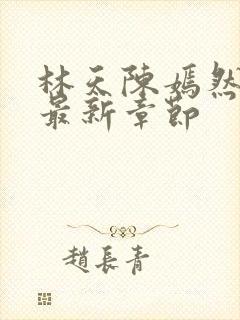 林天陳嫣然
最新章節
趙長青